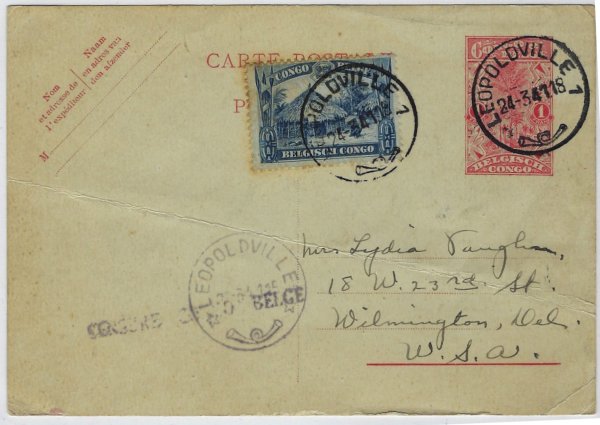 Nom
et adresse de
l'expéditeur
Naam
en adres van
den afzender
M
CARTE POSTALE
CONGO BELGE
BELGISCH CONGO
LEOPOLDVILLE 1
24-3-41 18
LEOPOLDVILLE 1
24-3-41 18
1
BELGISCH
CONGO
LEOPOLDVILLE
CENSURE
BELGE
Mrs Lydia Vaughn,
18 W. 23rd. St.
Wilmington, Del.
U.S.A.